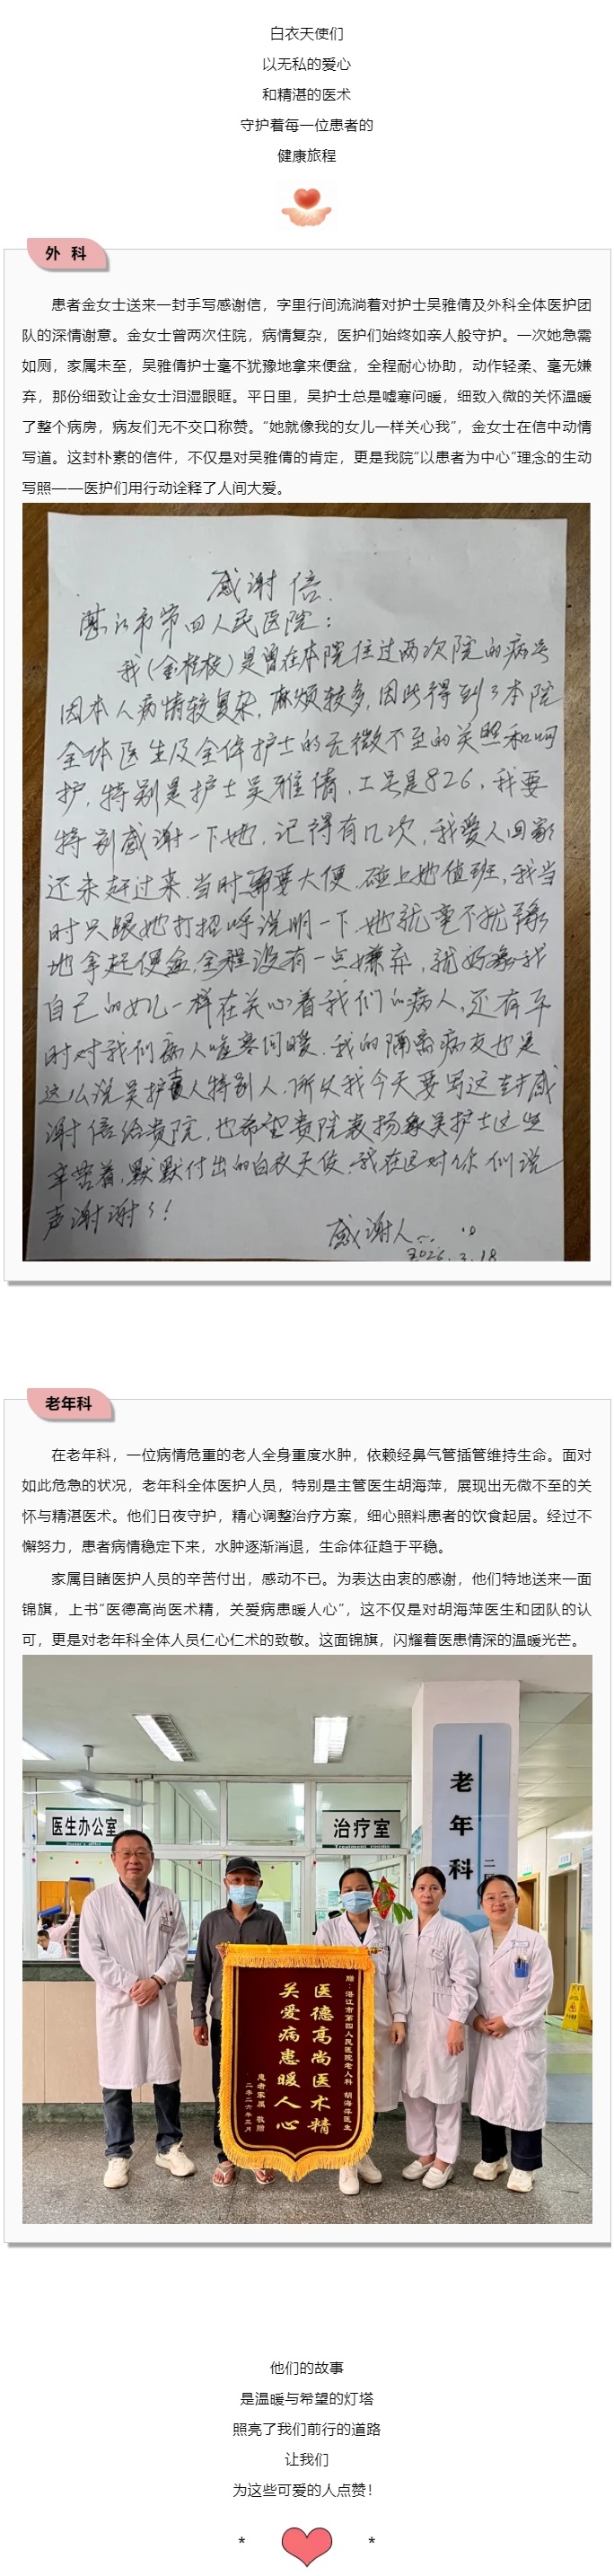 白衣天使们
以无私的爱心
和精湛的医术
守护着每一位患者的
健康旅程
外 科
患者金女士送来一封手写感谢信，字里行间流淌着对护士吴雅倩及外科全体医护团
队的深情谢意。金女士曾两次住院，病情复杂，医护们始终如亲人般守护。一次她急需
如厕，家属未至，吴雅倩护士毫不犹豫地拿来便盆，全程耐心协助，动作轻柔、毫无嫌
弃，那份细致让金女士泪湿眼眶。平日里，吴护士总是嘘寒问暖，细致入微的关怀温暖
了整个病房，病友们无不交口称赞。“她就像我的女儿一样关心我”，金女士在信中动情
写道。这封朴素的信件，不仅是对吴雅倩的肯定，更是我院“以患者为中心”理念的生动
写照——医护们用行动诠释了人间大爱。
感谢信.
湛江市第四人民医院：
我（金桂枝）是曾在本院住过两次院的病号
因本人病情较复杂，麻烦较多，因此得到了本院
全体医生及全体护士的无微不至的关照和呵
护，特别是护士吴雅倩，工号是826，我要
特别感谢一下她，记得有几次，我爱人回家
还未赶过来，当时需要大便，碰上她值班，我当
时只跟她打招呼说明一下，她就毫不犹豫
地拿起便盆，全程没有一点嫌弃，就好象我
自己的女儿一样在关心着我们的病人，还有平
时对我们病人嘘寒问暖，我的隔离病友也是
这么说吴护士人特别人，所以我今天要写这封感
谢信给贵院，也希望贵院表扬象吴护士这些
辛苦着，默默付出的白衣天使，我在这对你们说
声谢谢了！
感谢人
2026.3.18
老年科
在老年科，一位病情危重的老人全身重度水肿，依赖经鼻气管插管维持生命。面对
如此危急的状况，老年科全体医护人员，特别是主管医生胡海萍，展现出无微不至的关
怀与精湛医术。他们日夜守护，精心调整治疗方案，细心照料患者的饮食起居。经过不
懈努力，患者病情稳定下来，水肿逐渐消退，生命体征趋于平稳。
家属目睹医护人员的辛苦付出，感动不已。为表达由衷的感谢，他们特地送来一面
锦旗，上书“医德高尚医术精，关爱病患暖人心”，这不仅是对胡海萍医生和团队的认
可，更是对老年科全体人员仁心仁术的致敬。这面锦旗，闪耀着医患情深的温暖光芒。
医生办公室
治疗室
老年科
赠：湛江市第四人民医院老人科 胡海萍医生
医德高尚医术精
关爱病患暖人心
患者家属 敬赠
二零二六年三月
他们的故事
是温暖与希望的灯塔
照亮了我们前行的道路
让我们
为这些可爱的人点赞！
* *